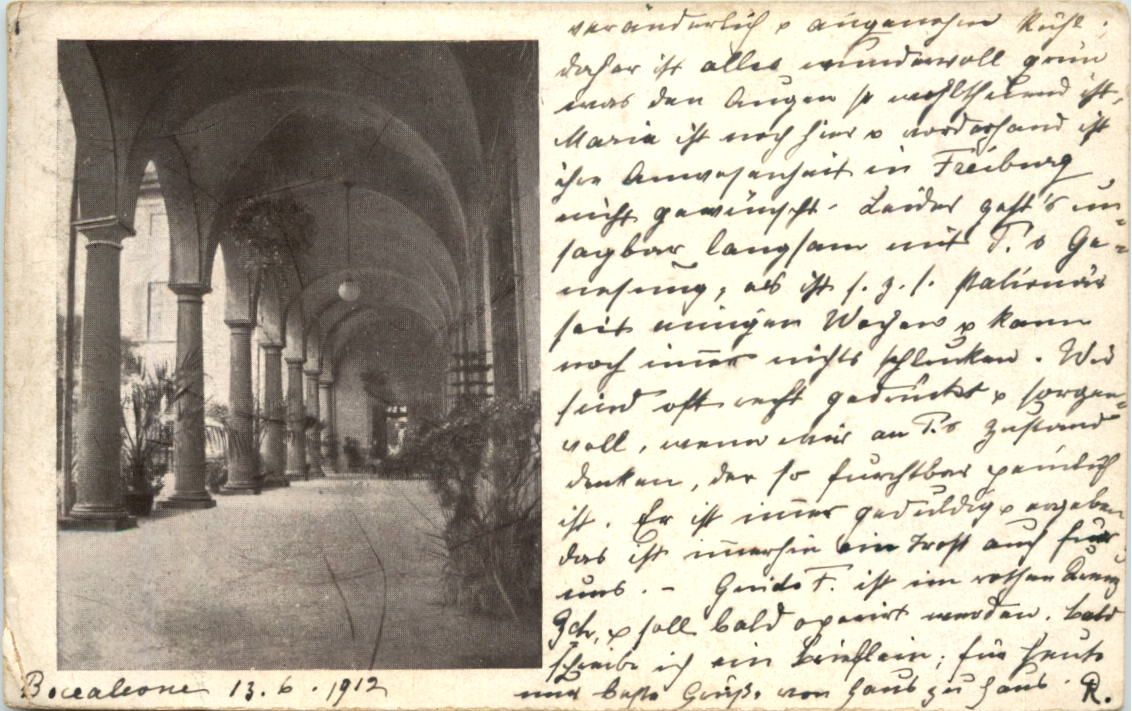 veränderlich & angenehm kühl,
daher ist alles wundervoll grün
was den Augen so wohlthuend ist.
Maria ist noch hier & vorderhand ist
ihre Anwesenheit in Freiburg
nicht gewünscht. Leider geht's un=
sagbar langsam mit P.'s Ge=
nesung, es ist s. z. s. stationär
seit einigen Wochen & kann
noch im̅er nichts schlucken. Wir
sind oft recht gedrückt & sorgen=
voll, wenn wir an P.'s Zustand
denken, der so furchtbar peinlich
ist. Er ist im̅er geduldig & ergeben
das ist im̅erhin ein Trost auch für
uns. – Guido F. ist im rothen Kreuz
& soll bald operirt werden. Bald
schreibe ich ein Brieflein; für heute
nur beste Grüße von Haus zu Haus. R.
Boccaleone 13. 6. 1912